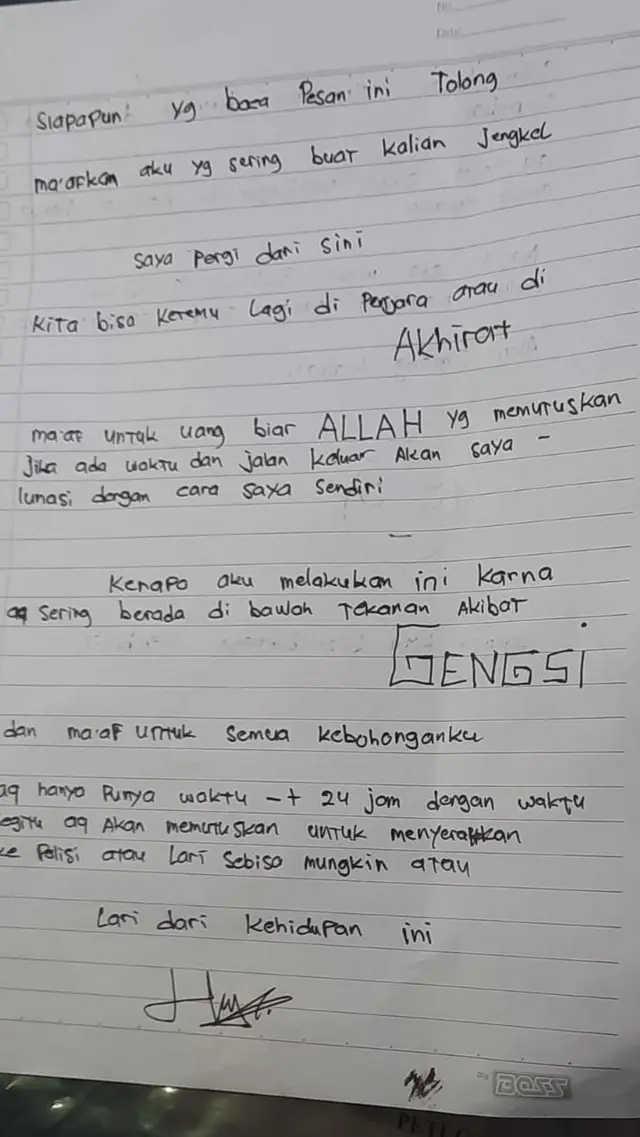 No.
Date.
Siapapun yg baca Pesan ini Tolong
ma'afkan aku yg sering buat kalian Jengkel
saya pergi dari sini
Kita bisa Ketemu Lagi di Penjara atau di
Akhirat
ma'af untuk uang biar ALLAH yg memutuskan
Jika ada waktu dan jalan keluar Akan saya -
lunasi dengan cara saya sendiri
Kenapa aku melakukan ini Karna
aq sering berada di bawah Tekanan Akibat
GENGSI
dan ma'af untuk semua kebohonganku
aq hanya Punya waktu -+ 24 jam dengan waktu
egitu aq Akan memutuskan untuk menyerahkan
ke Polisi atau Lari Sebisa mungkin atau
Lari dari Kehidupan ini
BOSS